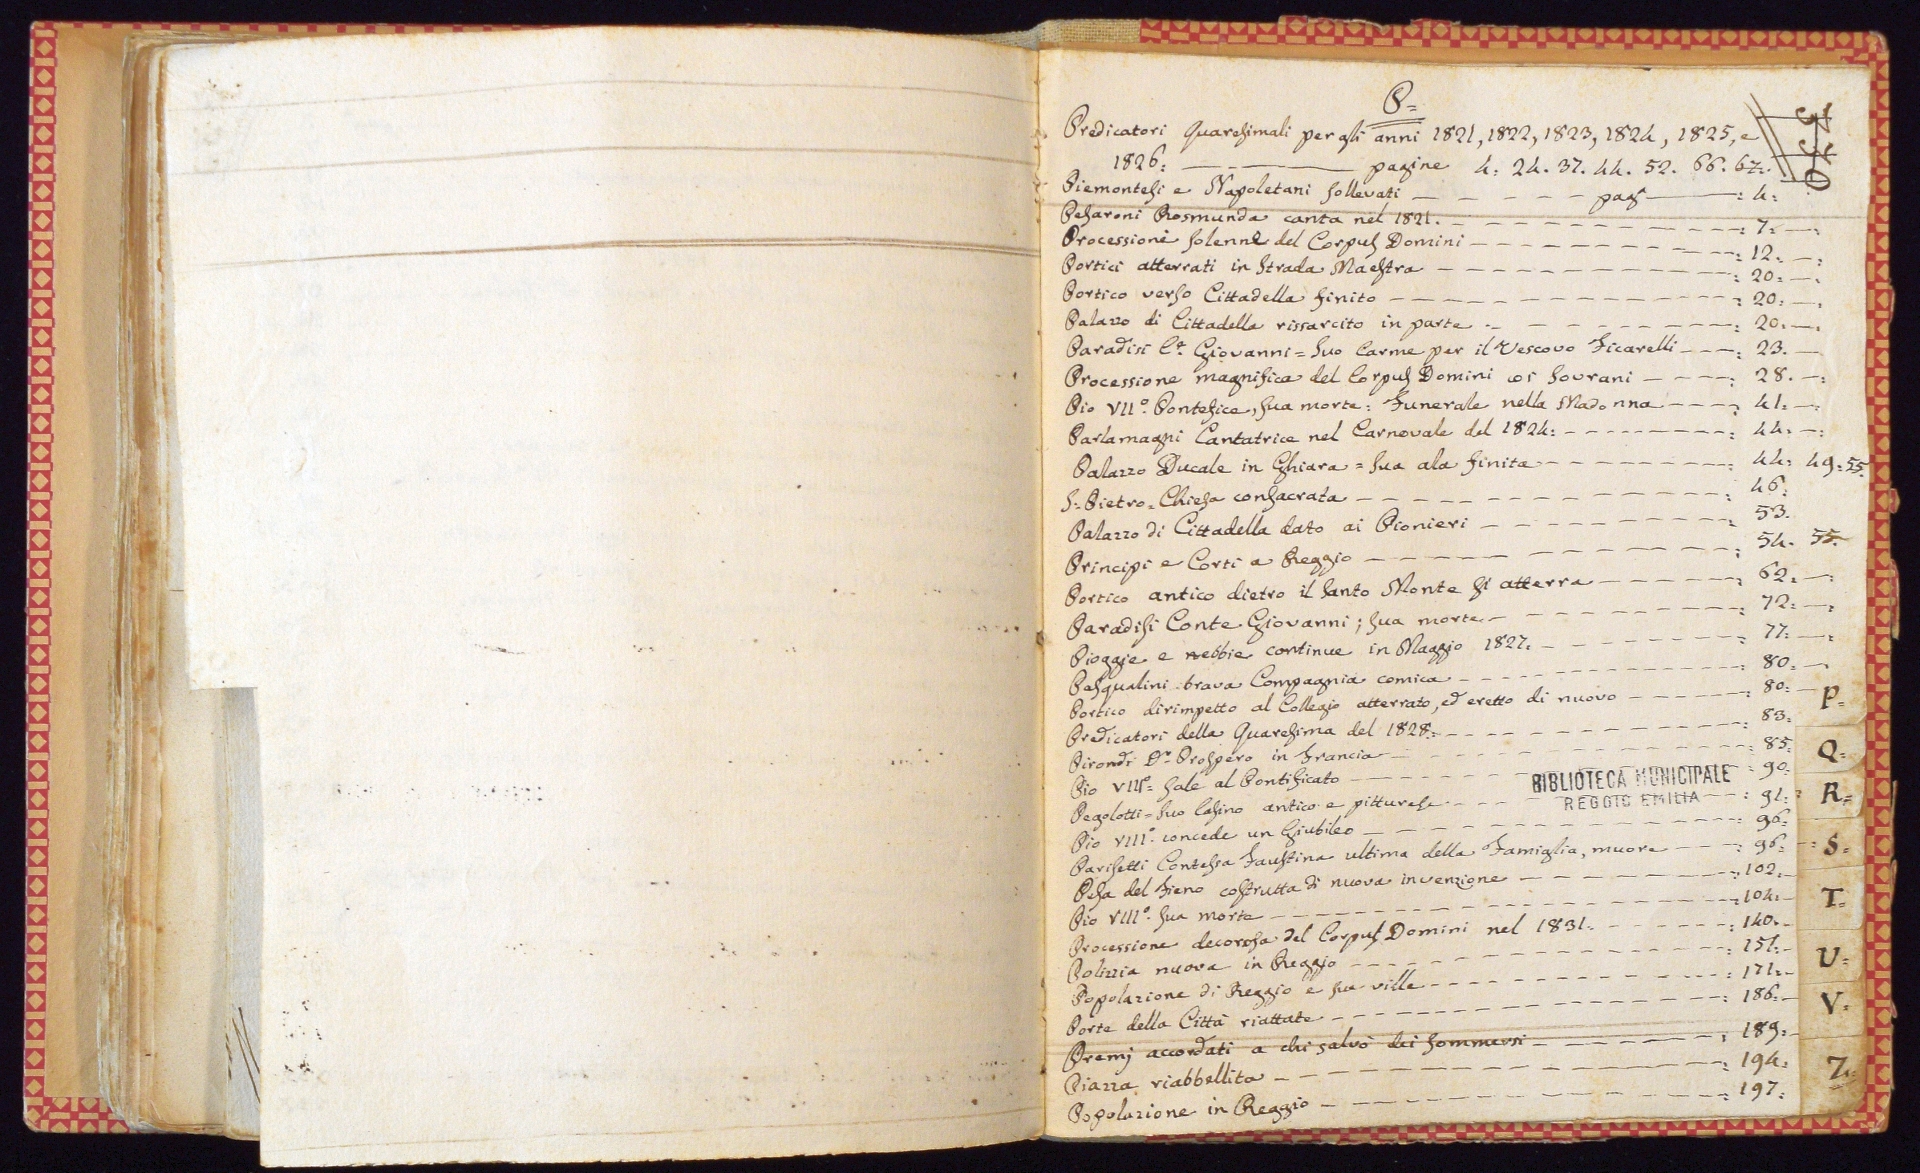 P=
Predicatori Quaresimali per gli anni 1821, 1822, 1823, 1824, 1825, e
1826: pagine 4: 24. 37. 44. 52. 66. 67.
Piemontesi e Napoletani sollevati pag: 4:
Pesaroni Rosmunda canta nel 1821. 7:
Processione solenne del Corpus Domini 12:
Portici atterrati in Strada Maestra 20:
Portico verso Cittadella finito 20:
Palazzo di Cittadella rissarcito in parte 20:
Paradisi Cte. Giovanni = suo Carme per il Vescovo Ficarelli 23.
Processione magnifica del Corpus Domini coi Sovrani 28.
Pio VII°. Pontefice, sua morte: Funerale nella Madonna 41:
Parlamagni Cantatrice nel Carnovale del 1824: 44:
Palazzo Ducale in Ghiara = sua ala finita 44: 49: 55.
S. Pietro = Chiesa consacrata 46:
Palazzo di Cittadella dato ai Pionieri 53.
Principi e Corti a Reggio 54. 55.
Portico antico dietro il Santo Monte si atterra 62:
Paradisi Conte Giovanni; sua morte 72:
Pioggie e nebbie continue in Maggio 1827. 77:
Pasqualini brava Compagnia comica 80:
Portico dirimpetto al Collegio atterrato, ed eretto di nuovo 80:
Predicatori della Quaresima del 1828: 83:
Pirondi Dr. Prospero in Francia 85:
Pio VIII°= sale al Pontificato 90:
Pegolotti = suo Casino antico e pitturesc 91:
Pio VIII°. concede un Giubileo 96:
Parisetti Contessa Faustina ultima della Famiglia, muore 96:
Pesa del Fieno costrutta di nuova invenzione 102:
Pio VIII°. sua morte 104:
Processione decorosa del Corpus Domini nel 1831. 140:
Polizzia nuova in Reggio 151:
Popolazione di Reggio e sue ville 171:
Porte della Città riattate 186:
Premj accordati a chi salvò dei sommersi 189:
Piazza riabbellita 194:
Popolazione in Reggio 197:
BIBLIOTECA MUNICIPALE
REGGIO EMILIA
P=
Q=
R=
S=
T=
U=
V=
Z=